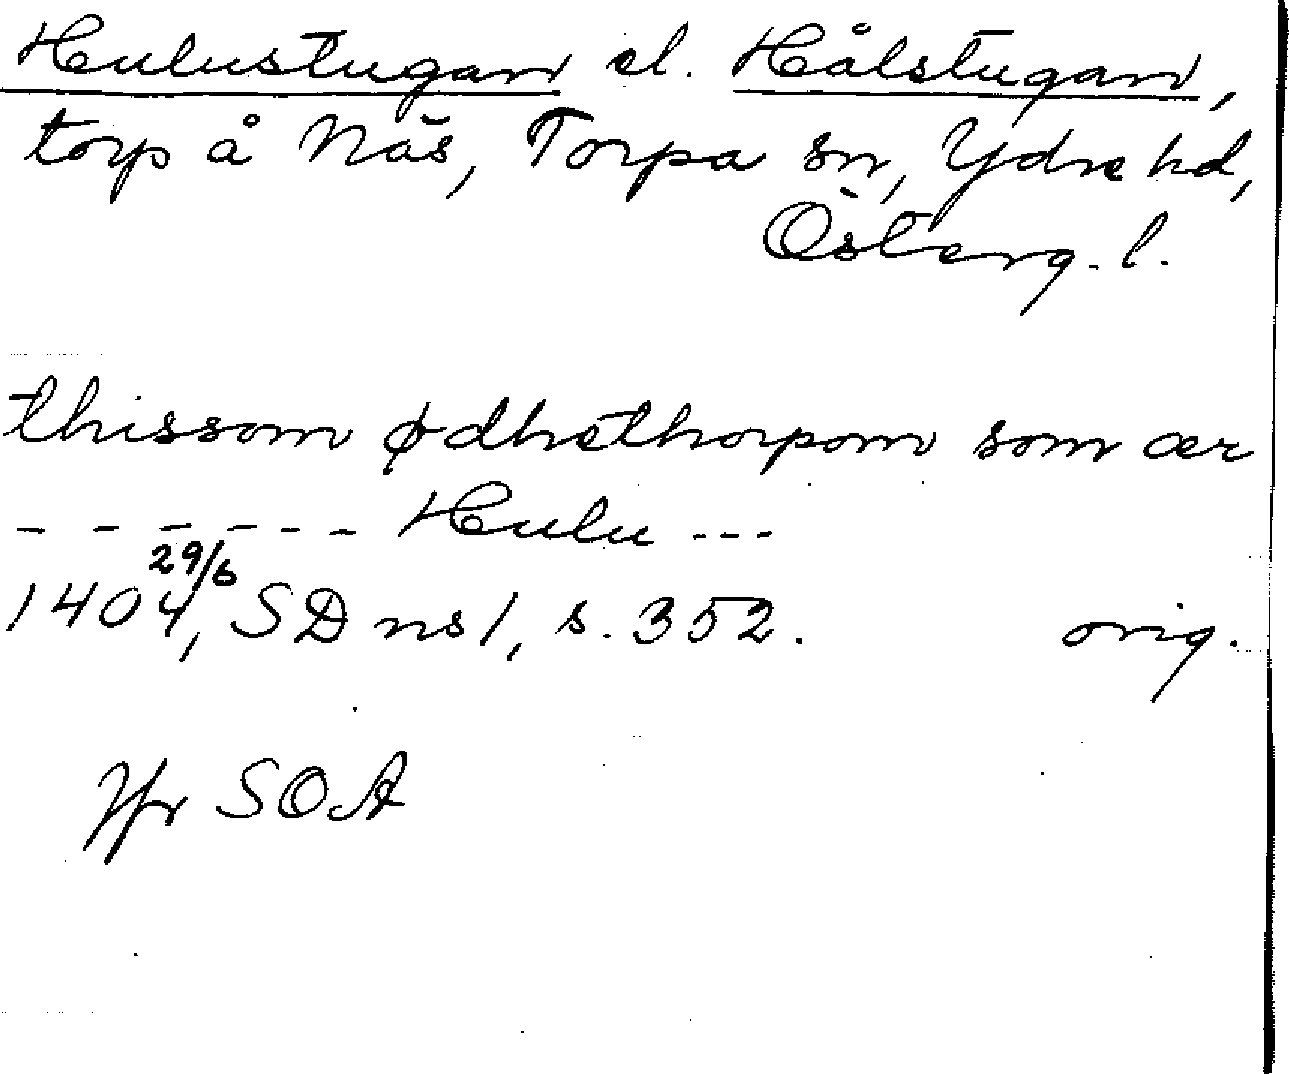 Hulustugan el. Hålstugan,
torp å Näs, Torpa sn, Ydre hd,
Österg. l.
thissom ødhethorpom som ær
- - - - - - Hulu ---
1404 29/6, SD ns 1, s. 352. orig.
Jfr SOA